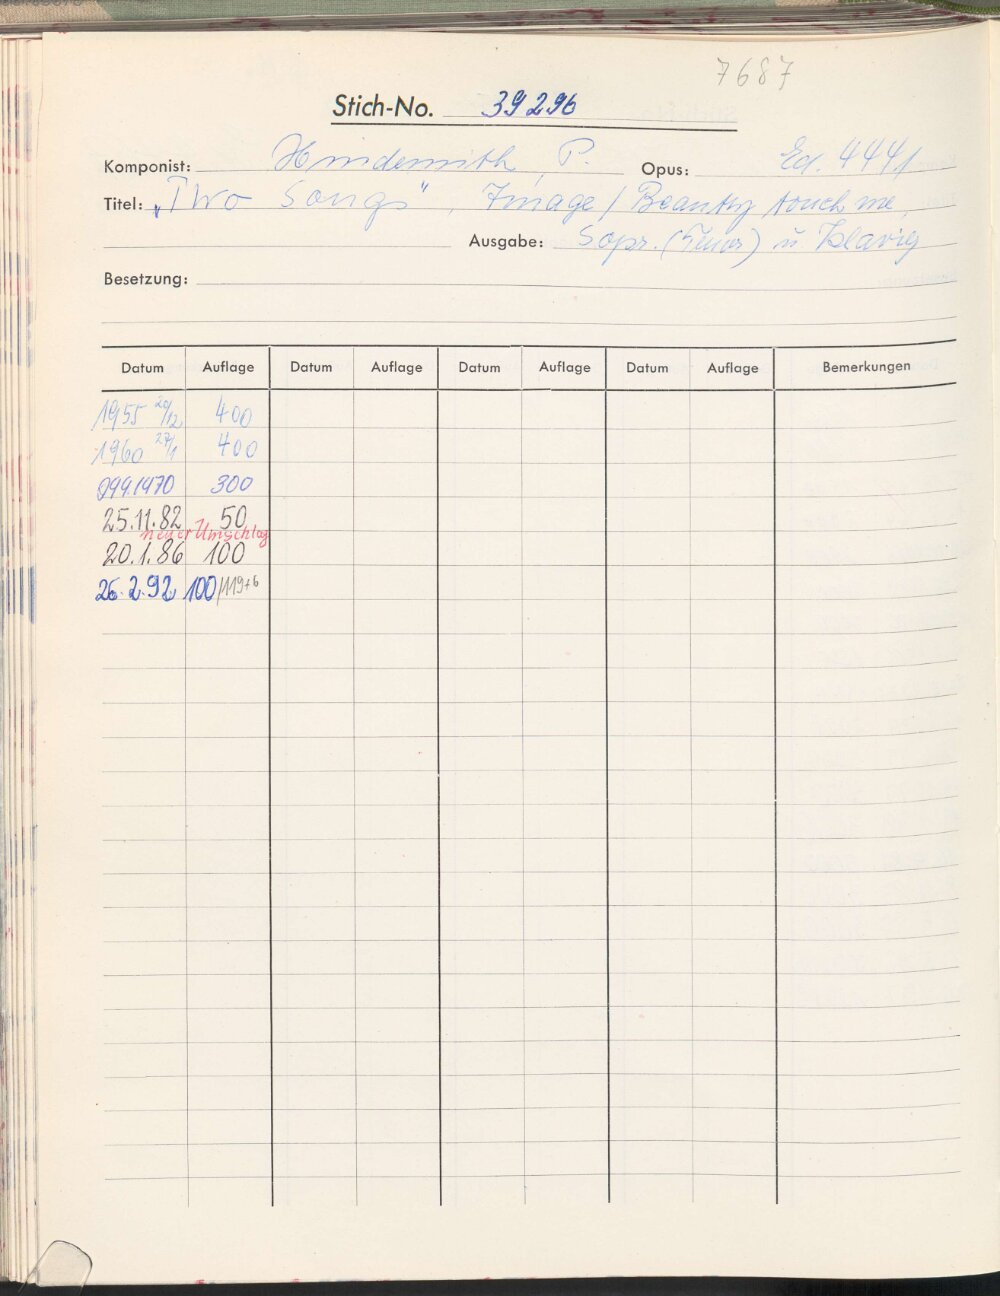 7687
Stich-No. 39296
Komponist: Hindemith, P. Opus: Ed. 4441
Titel: „Two Songs", Image / Beauty touch me,
Ausgabe: Sopr. (Tenor) u Klavier
Besetzung:
Datum Auflage Datum Auflage Datum Auflage Datum Auflage Bemerkungen
1955 20/12 400
1960 27/1 400
1970 300
25.11.82 50
neuer Umschlag
20.1.86 100
26.2.92 100/119+6